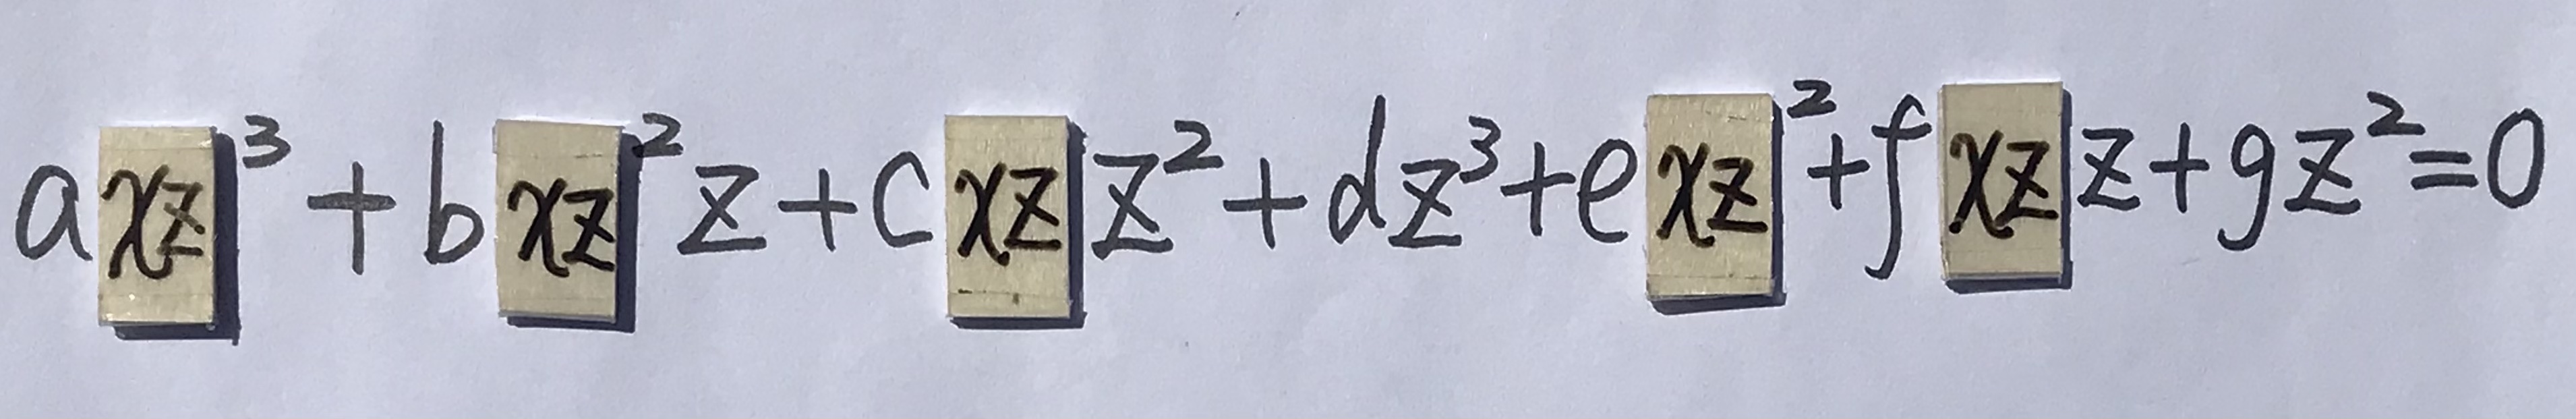 axz³+bxz²z+cxzz²+dz³+exz²+fxzz+gz²=0